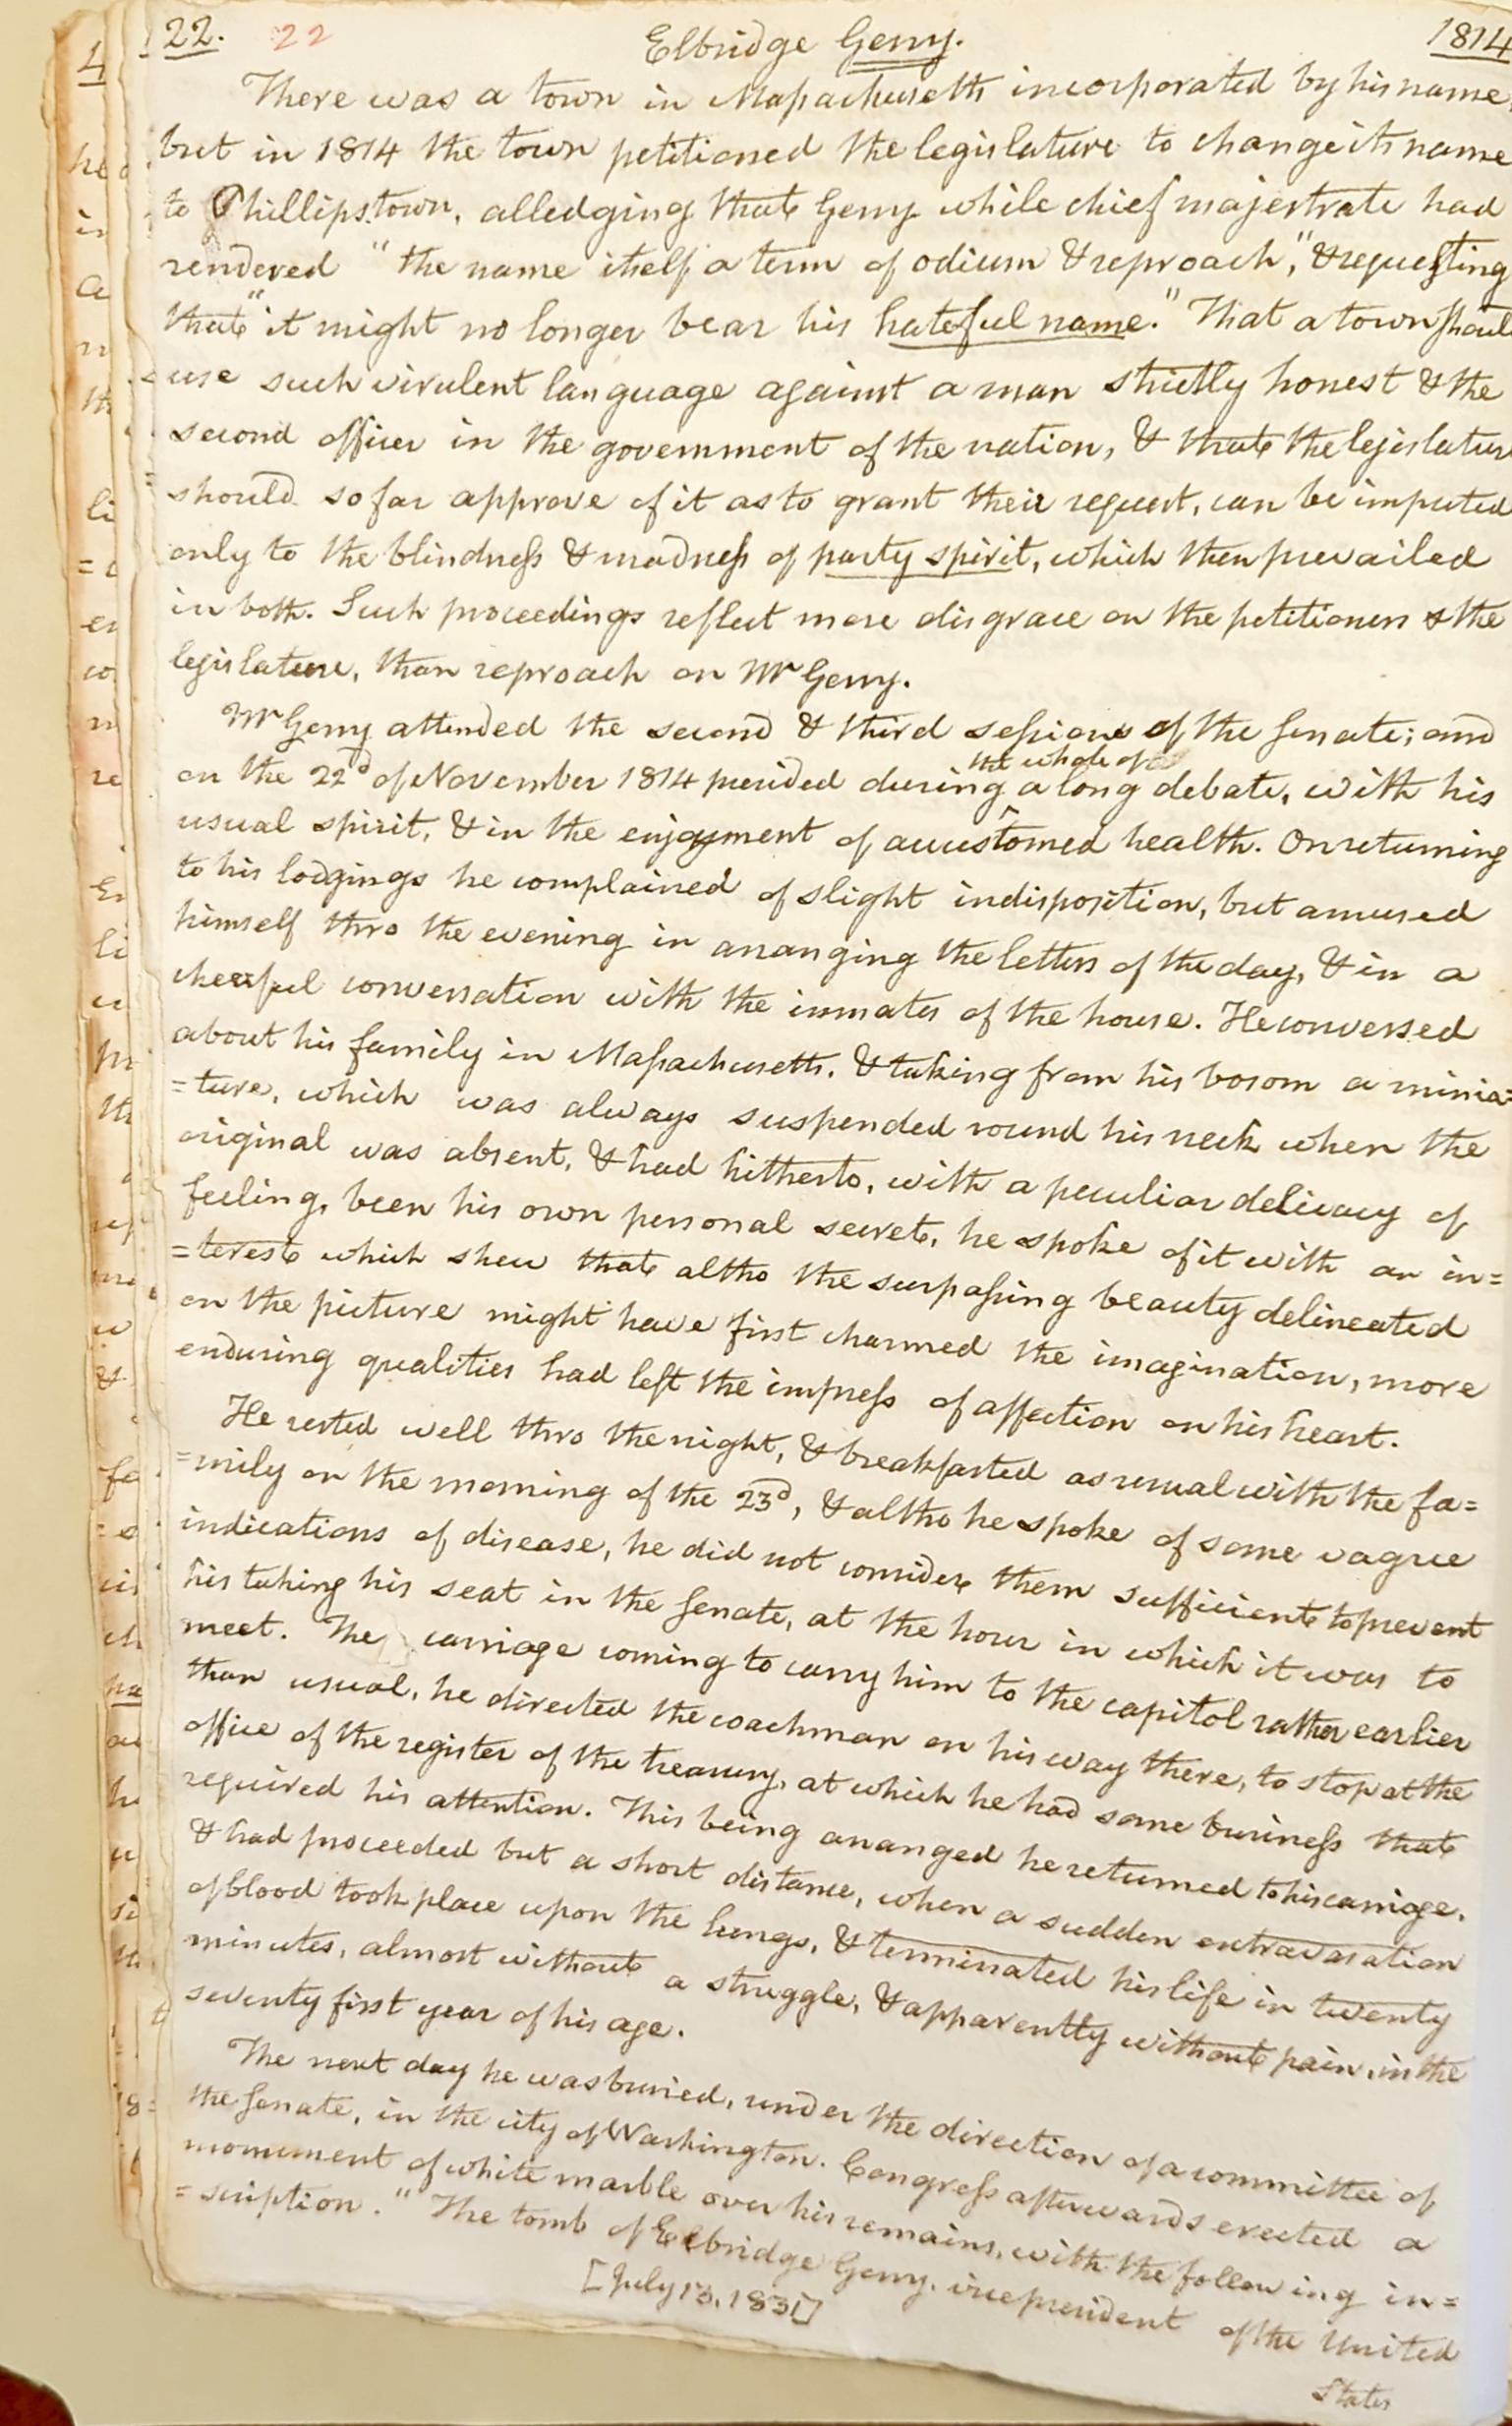 22. 22 Elbridge Gerry. 1814
There was a town in Massachusetts incorporated by his name,
but in 1814 the town petitioned the legislature to change its name
to Phillipstown, alledging that Gerry while chief majestrate had
rendered "the name itself a term of odium & reproach," & requesting
that "it might no longer bear his hateful name." That a town shoul
use such virulent language against a man strictly honest & the
second officer in the government of the nation, & that the legislature
should so far approve of it as to grant their request, can be imputed
only to the blindness & madness of party spirit, which then prevailed
in both. Such proceedings reflect more disgrace on the petitioners & the
legislature, than reproach on Mr Gerry.
Mr Gerry attended the second & third sessions of the Senate; and
the whole of
on the 22d of November 1814 presided during a long debate, with his
usual spirit, & in the enjoyment of accustomed health. On returning
to his lodgings he complained of slight indisposition, but amused
himself thro the evening in arranging the letters of the day, & in a
cheerful conversation with the inmates of the house. He conversed
about his family in Massachusetts. & taking from his bosom a minia=
=ture, which was always suspended round his neck when the
original was absent, & had hitherto, with a peculiar delicacy of
feeling, been his own personal secret, he spoke of it with an in=
=terest which shew that altho the surpassing beauty delineated
on the picture might have first charmed the imagination, more
enduring qualities had left the impress of affection on his heart.
He rested well thro the night, & breakfasted as usual with the fa=
=mily on the morning of the 23d, & altho he spoke of some vague
indications of disease, he did not consider them sufficient to prevent
his taking his seat in the Senate, at the hour in which it was to
meet. The carriage coming to carry him to the capitol rather earlier
than usual, he directed the coachman on his way there, to stop at the
office of the register of the treasury, at which he had some business that
required his attention. This being arranged he returned to his carriage,
& had proceeded but a short distance, when a sudden extravasation
of blood took place upon the lungs, & terminated his life in twenty
minutes, almost without a struggle, & apparently without pain, in the
seventy first year of his age.
The next day he was buried, under the direction of a committee of
the Senate, in the city of Washington. Congress afterwards erected a
monument of white marble over his remains, with the following in=
=scription. "The tomb of Elbridge Gerry, vice president of the United
[July 13, 1831] States